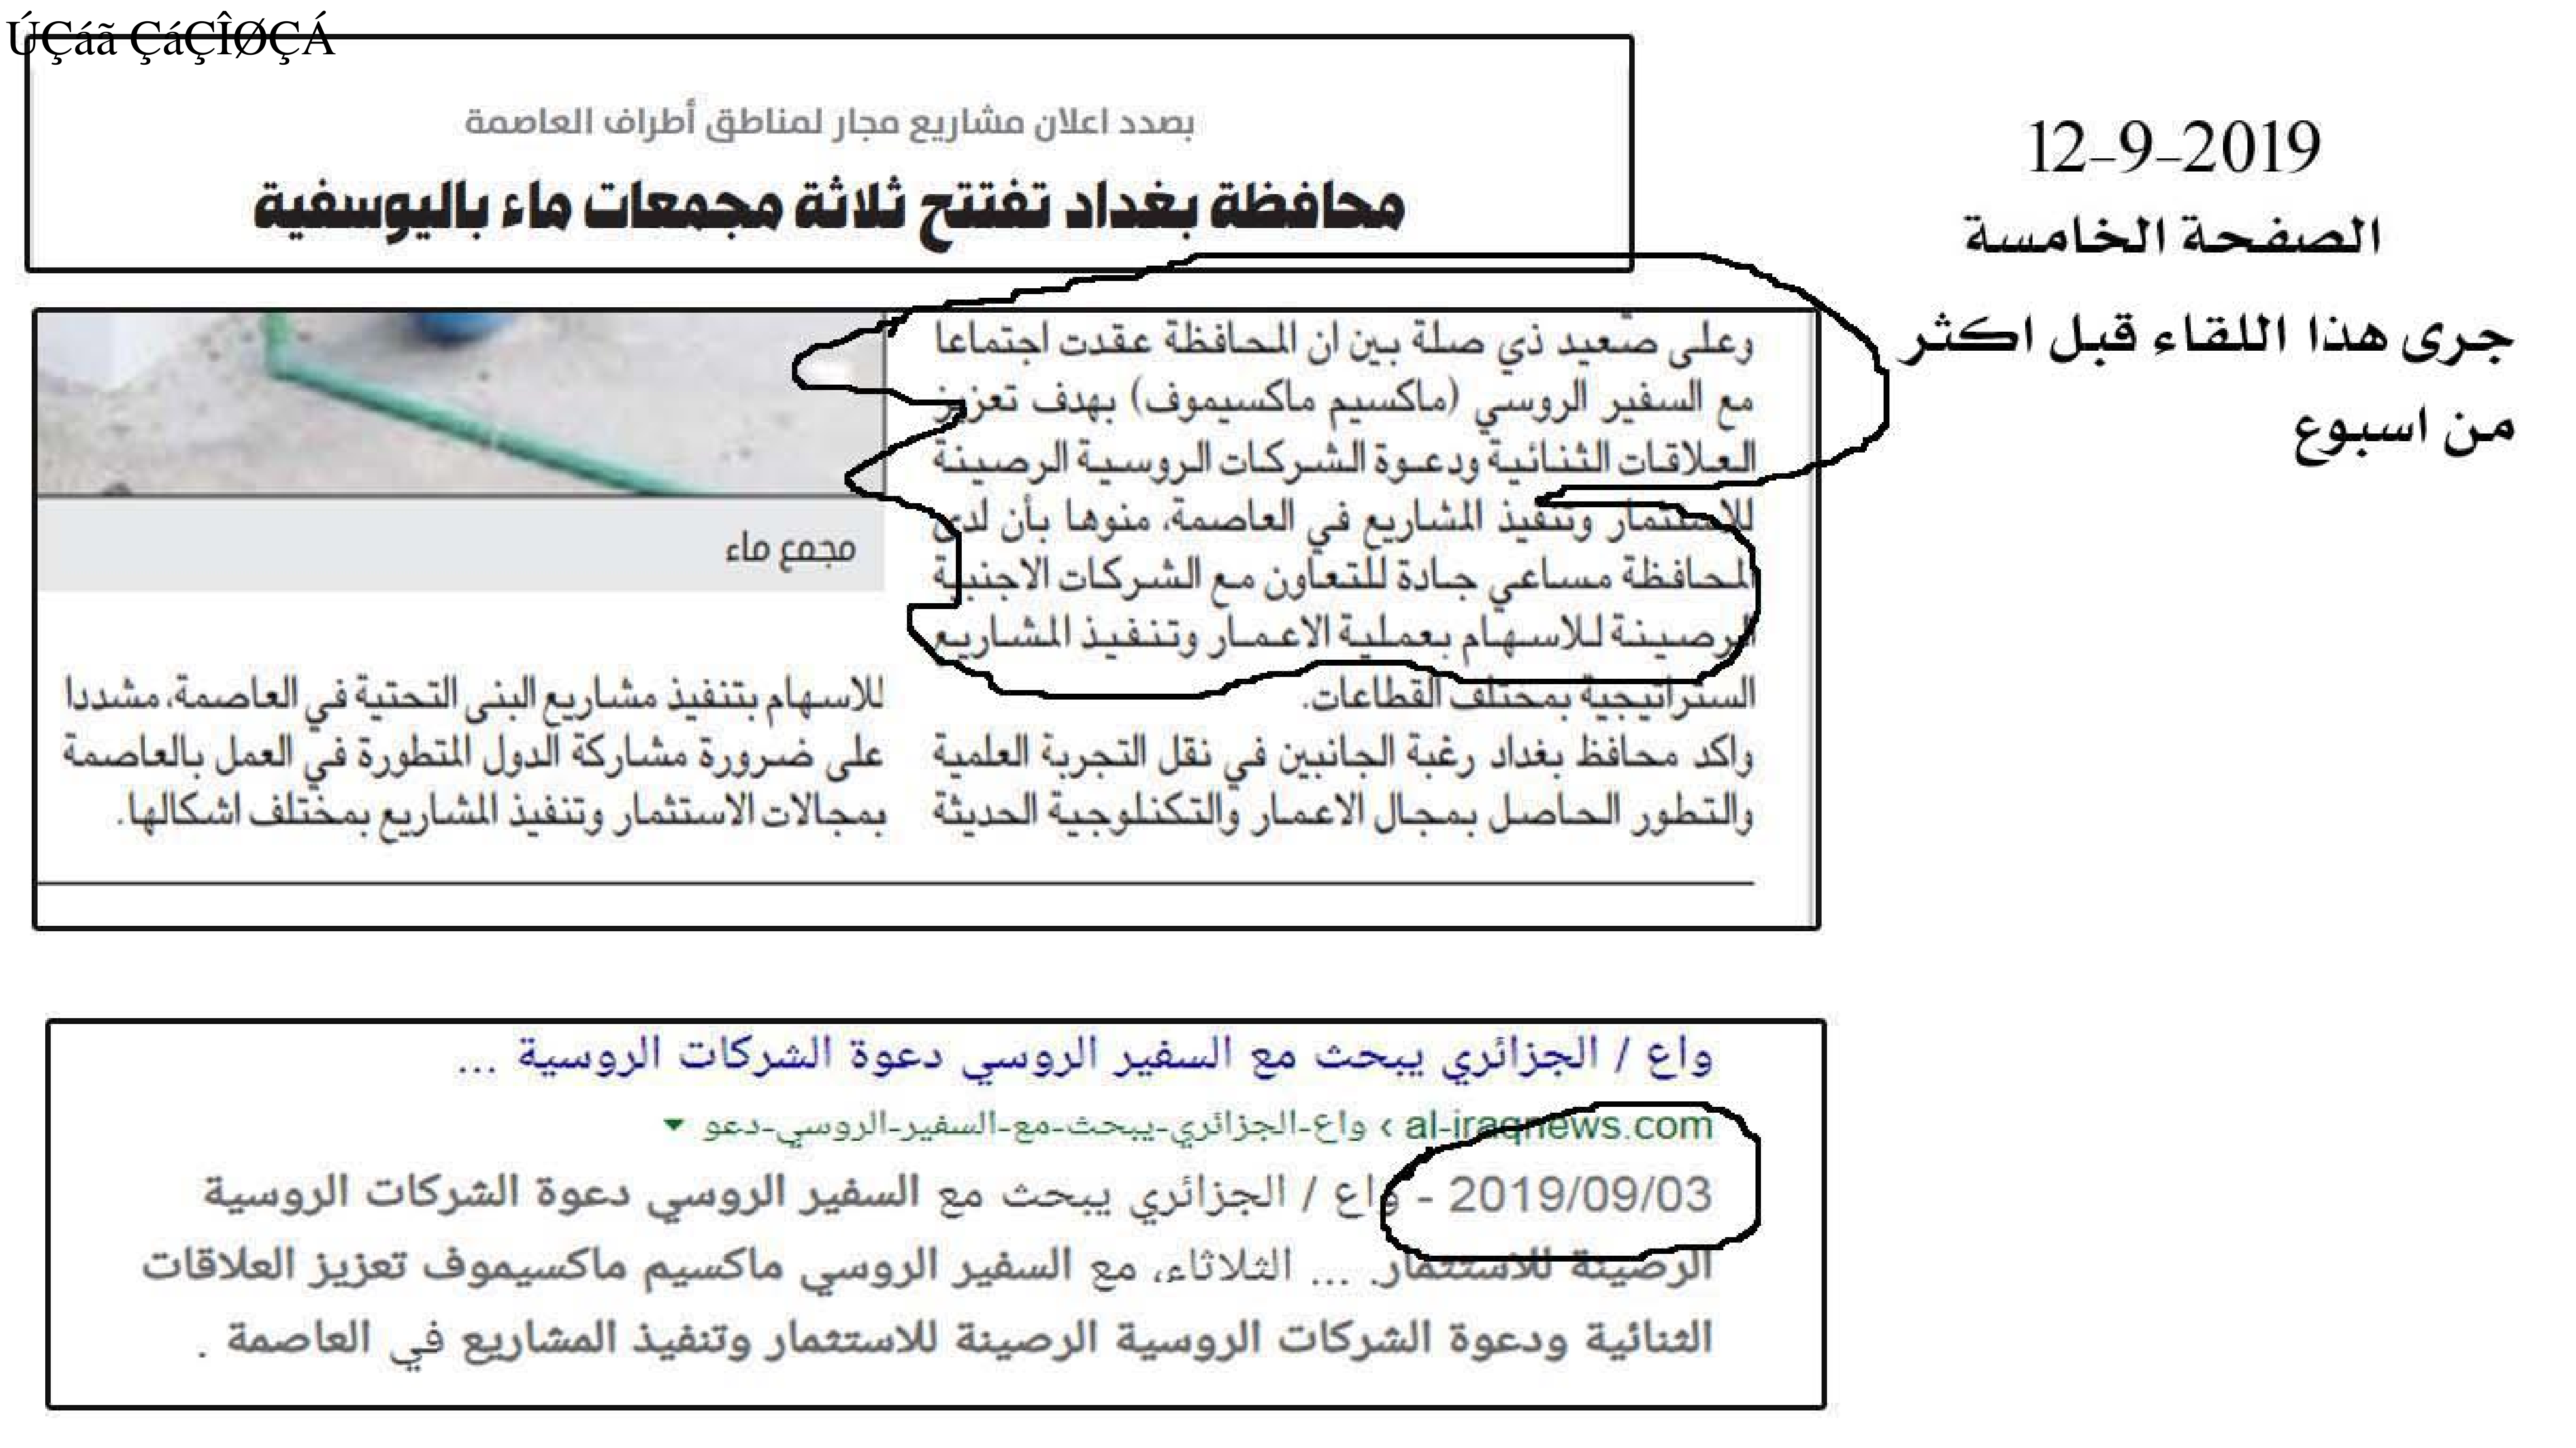 ÚÇáã ÇáÇÎØÇÁ
بصدد اعلان مشاريع مجار لمناطق أطراف العاصمة
محافظة بغداد تفتتح ثلاثة مجمعات ماء باليوسفية
12-9-2019
الصفحة الخامسة
جرى هذا اللقاء قبل اكثر
من اسبوع
وعلى صعيد ذي صلة بين ان المحافظة عقدت اجتماعا
مع السفير الروسي (ماكسيم ماكسيموف) بهدف تعزيز
العلاقات الثنائية ودعوة الشركات الروسية الرصينة
للاستثمار وتنفيذ المشاريع في العاصمة، منوها بأن لدى
المحافظة مساعي جادة للتعاون مع الشركات الاجنبية
الرصينة للاسهام بعملية الاعمار وتنفيذ المشاريع
الستراتيجية بمختلف القطاعات.
واكد محافظ بغداد رغبة الجانبين في نقل التجربة العلمية
والتطور الحاصل بمجال الاعمار والتكنلوجية الحديثة
مجمع ماء
للاسهام بتنفيذ مشاريع البنى التحتية في العاصمة، مشددا
على ضرورة مشاركة الدول المتطورة في العمل بالعاصمة
بمجالات الاستثمار وتنفيذ المشاريع بمختلف اشكالها.
واع / الجزائري يبحث مع السفير الروسي دعوة الشركات الروسية ...
al-iraqnews.com › واع-الجزائري-يبحث-مع-السفير-الروسي-دعو
2019/09/03 - واع / الجزائري يبحث مع السفير الروسي دعوة الشركات الروسية
الرصينة للاستثمار. ... الثلاثاء، مع السفير الروسي ماكسيم ماكسيموف تعزيز العلاقات
الثنائية ودعوة الشركات الروسية الرصينة للاستثمار وتنفيذ المشاريع في العاصمة .